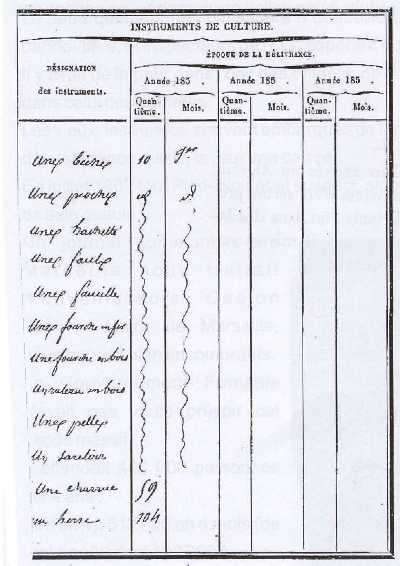 INSTRUMENTS DE CULTURE.
DÉSIGNATION
des instruments.
ÉPOQUE DE LA DÉLIVRANCE.
Année 185 Année 185 Année 185
Quan-
tième. Mois. Quan-
tième. Mois. Quan-
tième. Mois.
Une 10 9bre
Une pioche id id
Une hachette
Une faulx
Une faucille
Une fourche en fer
Une fourche en bois
Un rateau en bois
Une pelle
Un sarcloir
Une charrue 59
un herse 104